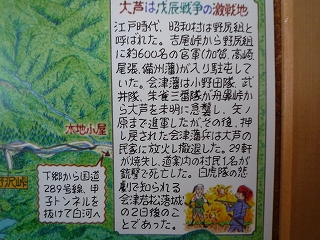 大芦は戊辰戦争の激戦地
江戸時代、昭和村は野尻組と
呼ばれた。吉尾峠から野尻組
に約600名の官軍(加賀、高崎
尾張、備州藩)が入り駐屯して
いた。会津藩は小野田隊、武
井隊、朱雀三番隊が舟鼻峠か
ら大芦を未明に急襲し、矢ノ
原まで進軍したがその後、押
し戻された会津藩兵は大芦の
民家に放火し撤退した。29軒
が焼失し、道案内の村民1名が
銃撃で死亡した。白虎隊の悲
劇で知られる
会津若松落城
の2日後のこ
とであった。
木地小屋
下郷から国道
289号線、甲
子トンネルを
抜けて白河へ